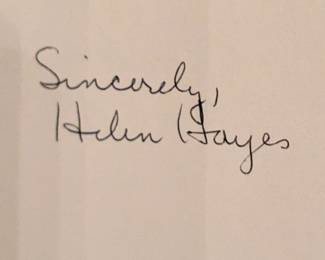 Sincerely,
Helen Hayes